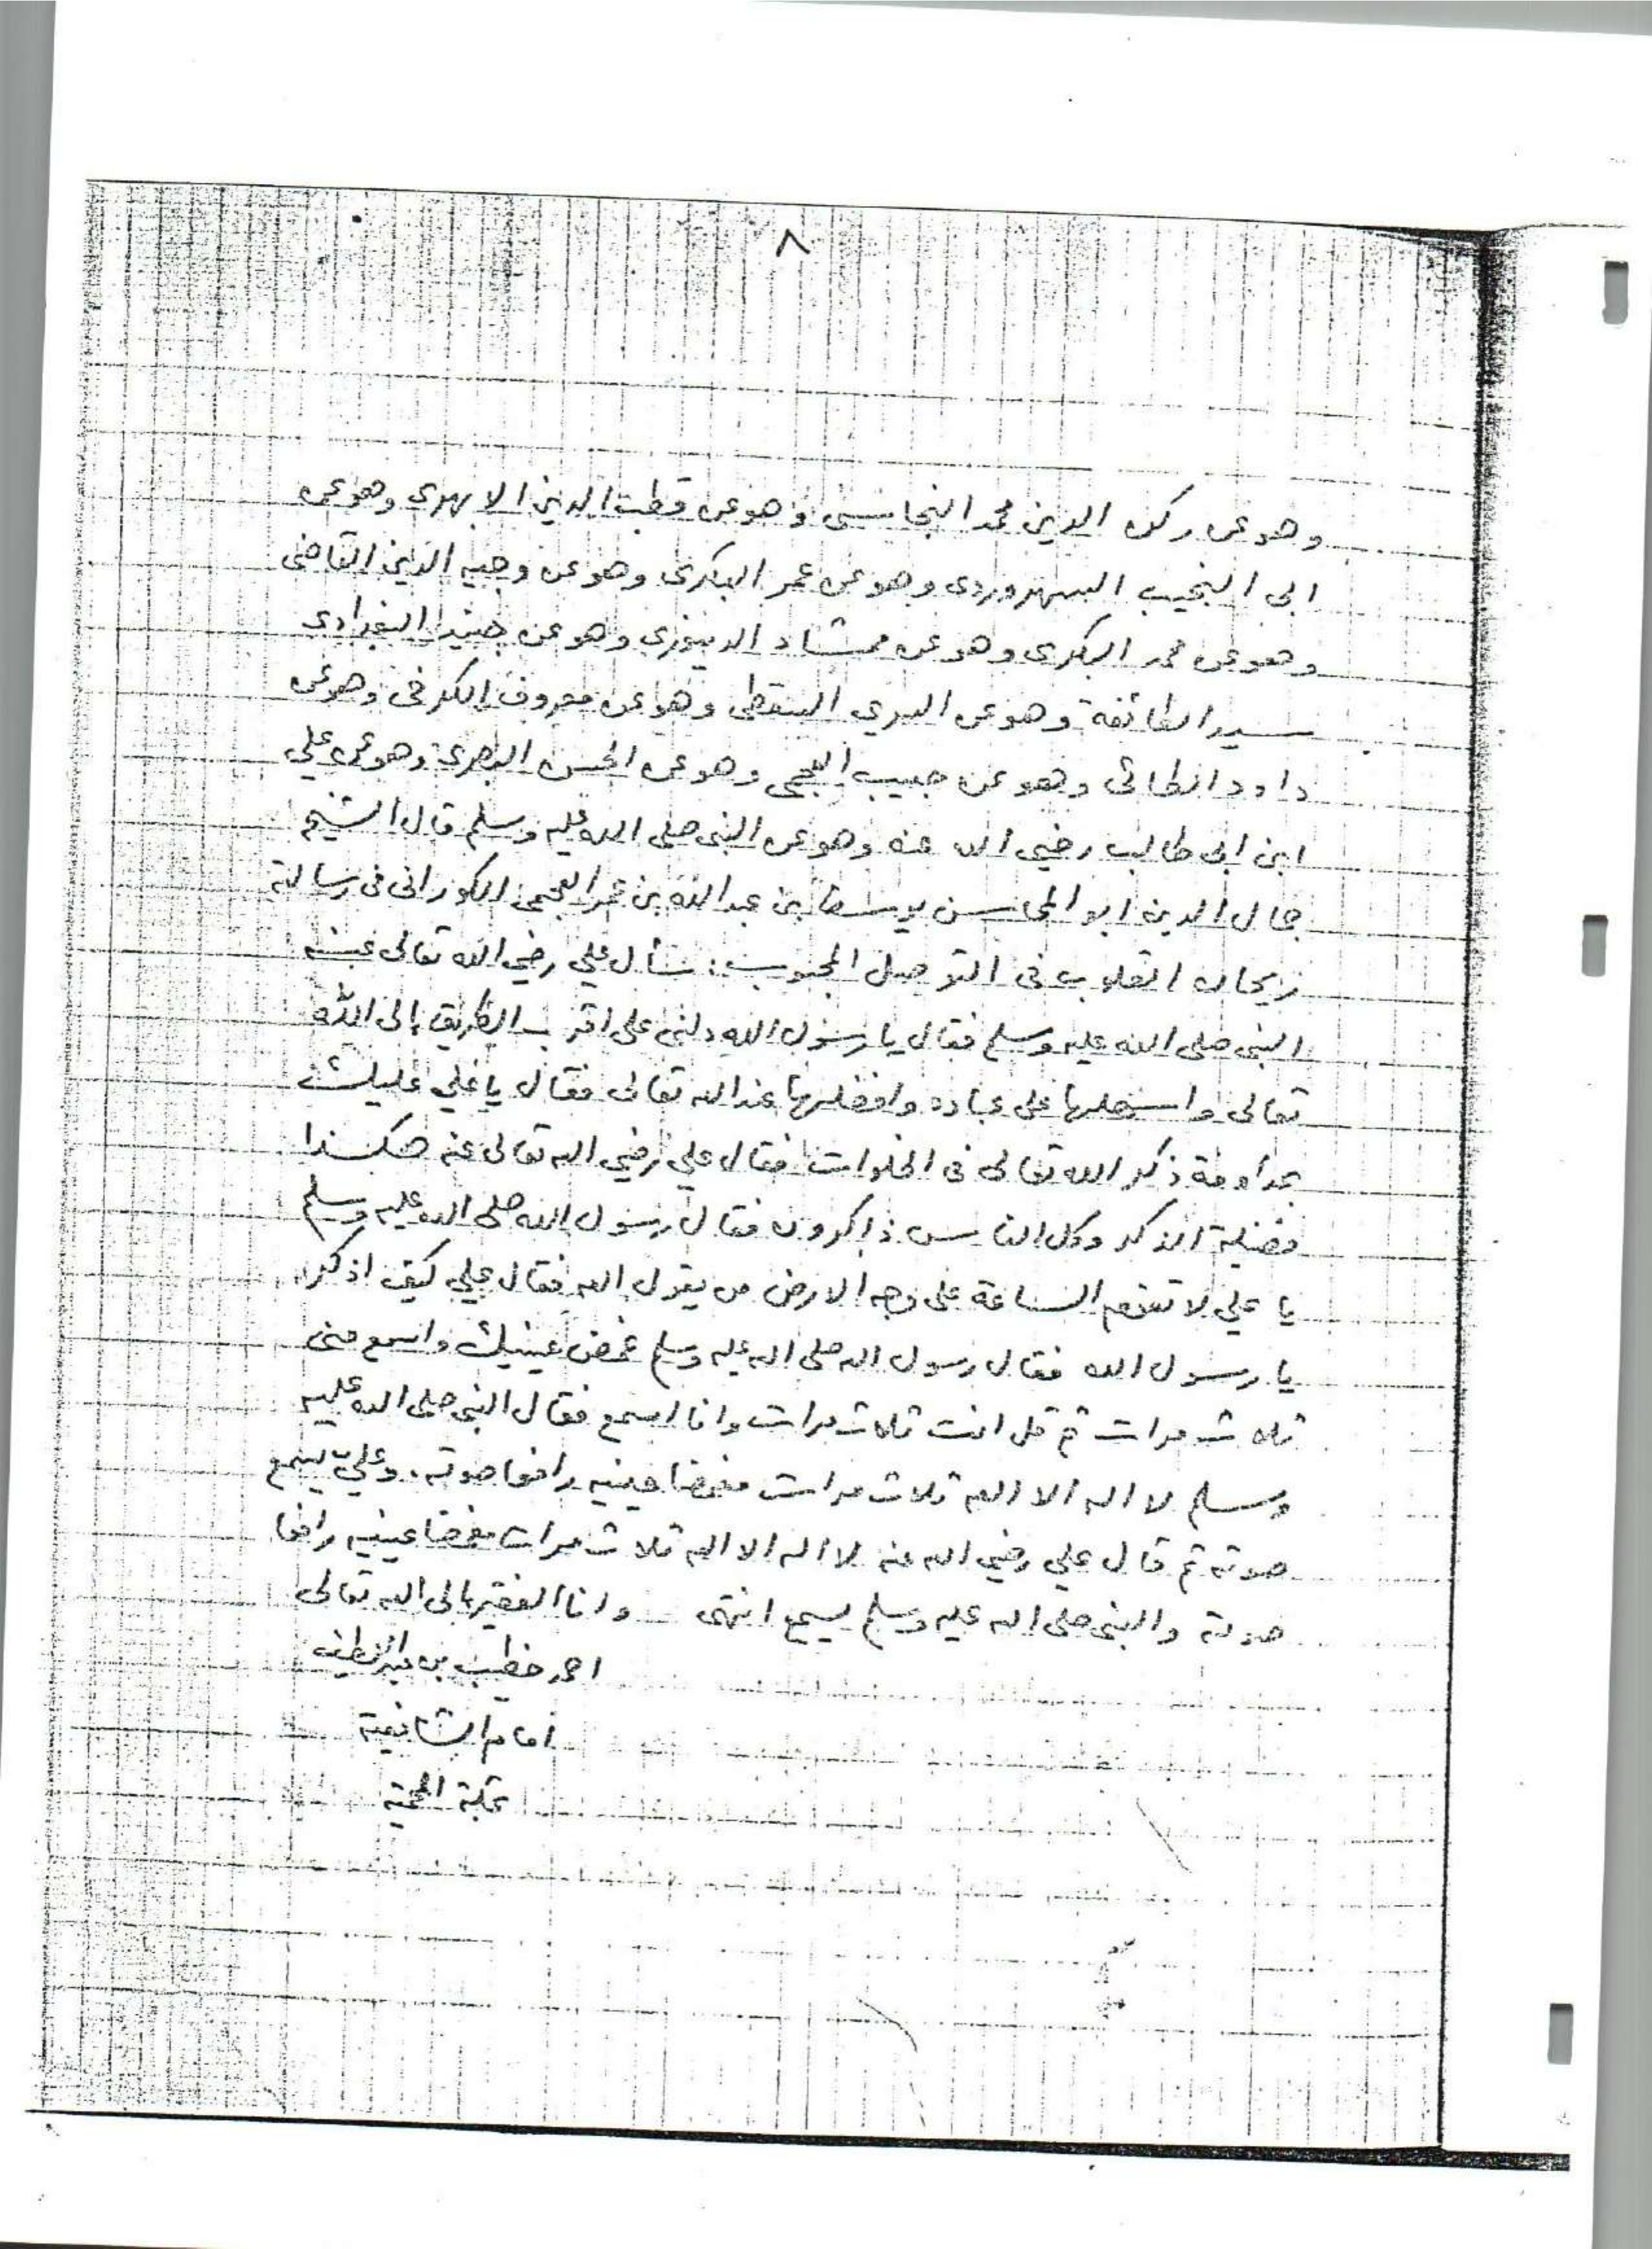 ٨
وهو عن ركن الدين محمد النجاشى وهو عن قطب الدين الابهرى وهو عن
ابى النجيب السهروردى وهو عن عمر البكرى وهو عن وجيه الدين القاضى
وهو عن محمد البكرى وهو عن ممشاد الدينورى وهو عن جنيد البغدادى
سيد الطائفة وهو عن السري السقطى وهو عن معروف الكرخى وهو عن
داود الطائى وهو عن حبيب العجمى وهو عن الحسن البصرى وهو عن علي
ابن ابى طالب رضي الله عنه وهو عن النبى صلى الله عليه وسلم قال الشيخ
جمال الدين ابو المحاسن يوسف بن عبد الله بن عمر العجمى الكورانى فى رسالته
ريحان القلوب فى التوصل المحبوب : سأل علي رضي الله تعالى عنه
النبى صلى الله عليه وسلم فقال يا رسول الله دلنى على اقرب الطريق إلى الله
تعالى واسهلها على عباده وافضلها عند الله تعالى فقال يا علي عليك
بمداومة ذكر الله تعالى فى الخلوات فقال علي رضي الله تعالى عنه هكذا
فضيلة الذكر وكل الناس ذاكرون فقال رسول الله صلى الله عليه وسلم
يا علي لا تقوم الساعة على وجه الارض من يقول الله فقال علي كيف اذكر
يا رسول الله فقال رسول الله صلى الله عليه وسلم غمض عينيك واسمع منى
ثلاث مرات ثم قل انت ثلاث مرات وانا اسمع فقال النبى صلى الله عليه
وسلم لا اله الا الله ثلاث مرات مغمضا عينيه رافعا صوته . وعليّ يسمع
صوته ثم قال علي رضي الله عنه لا اله الا الله ثلاث مرات مغمضا عينيه رافعا
صوته والنبى صلى الله عليه وسلم يسمع انتهى وانا الفقير الى الله تعالى
احمد خطيب بن عبد اللطيف
امام الشافعية
بمكة المحمية